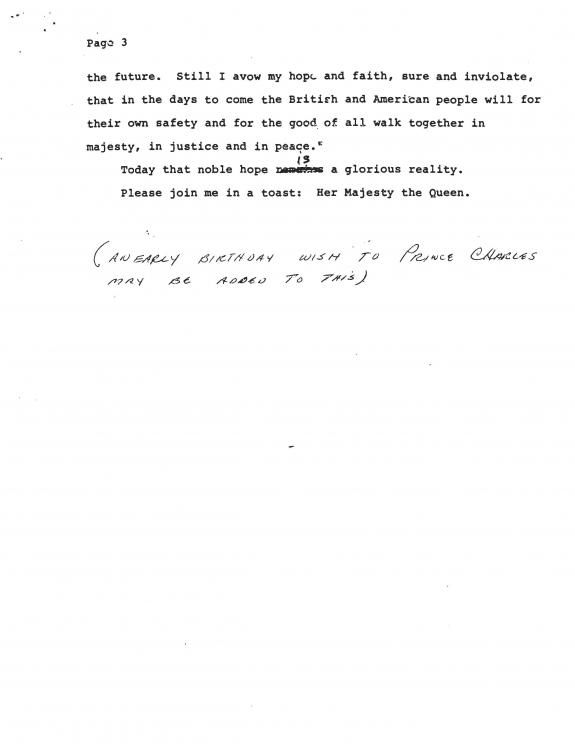 Page 3
the future. Still I avow my hope and faith, sure and inviolate,
that in the days to come the British and American people will for
their own safety and for the good of all walk together in
majesty, in justice and in peace."
Today that noble hope is a glorious reality.
Please join me in a toast: Her Majesty the Queen.
(AN EARLY BIRTHDAY WISH TO PRINCE CHARLES
MAY BE ADDED TO THIS)